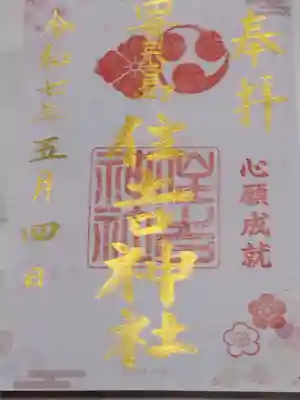 奉拝
心願成就
住吉神社
住吉
神社
令和七年五月四日